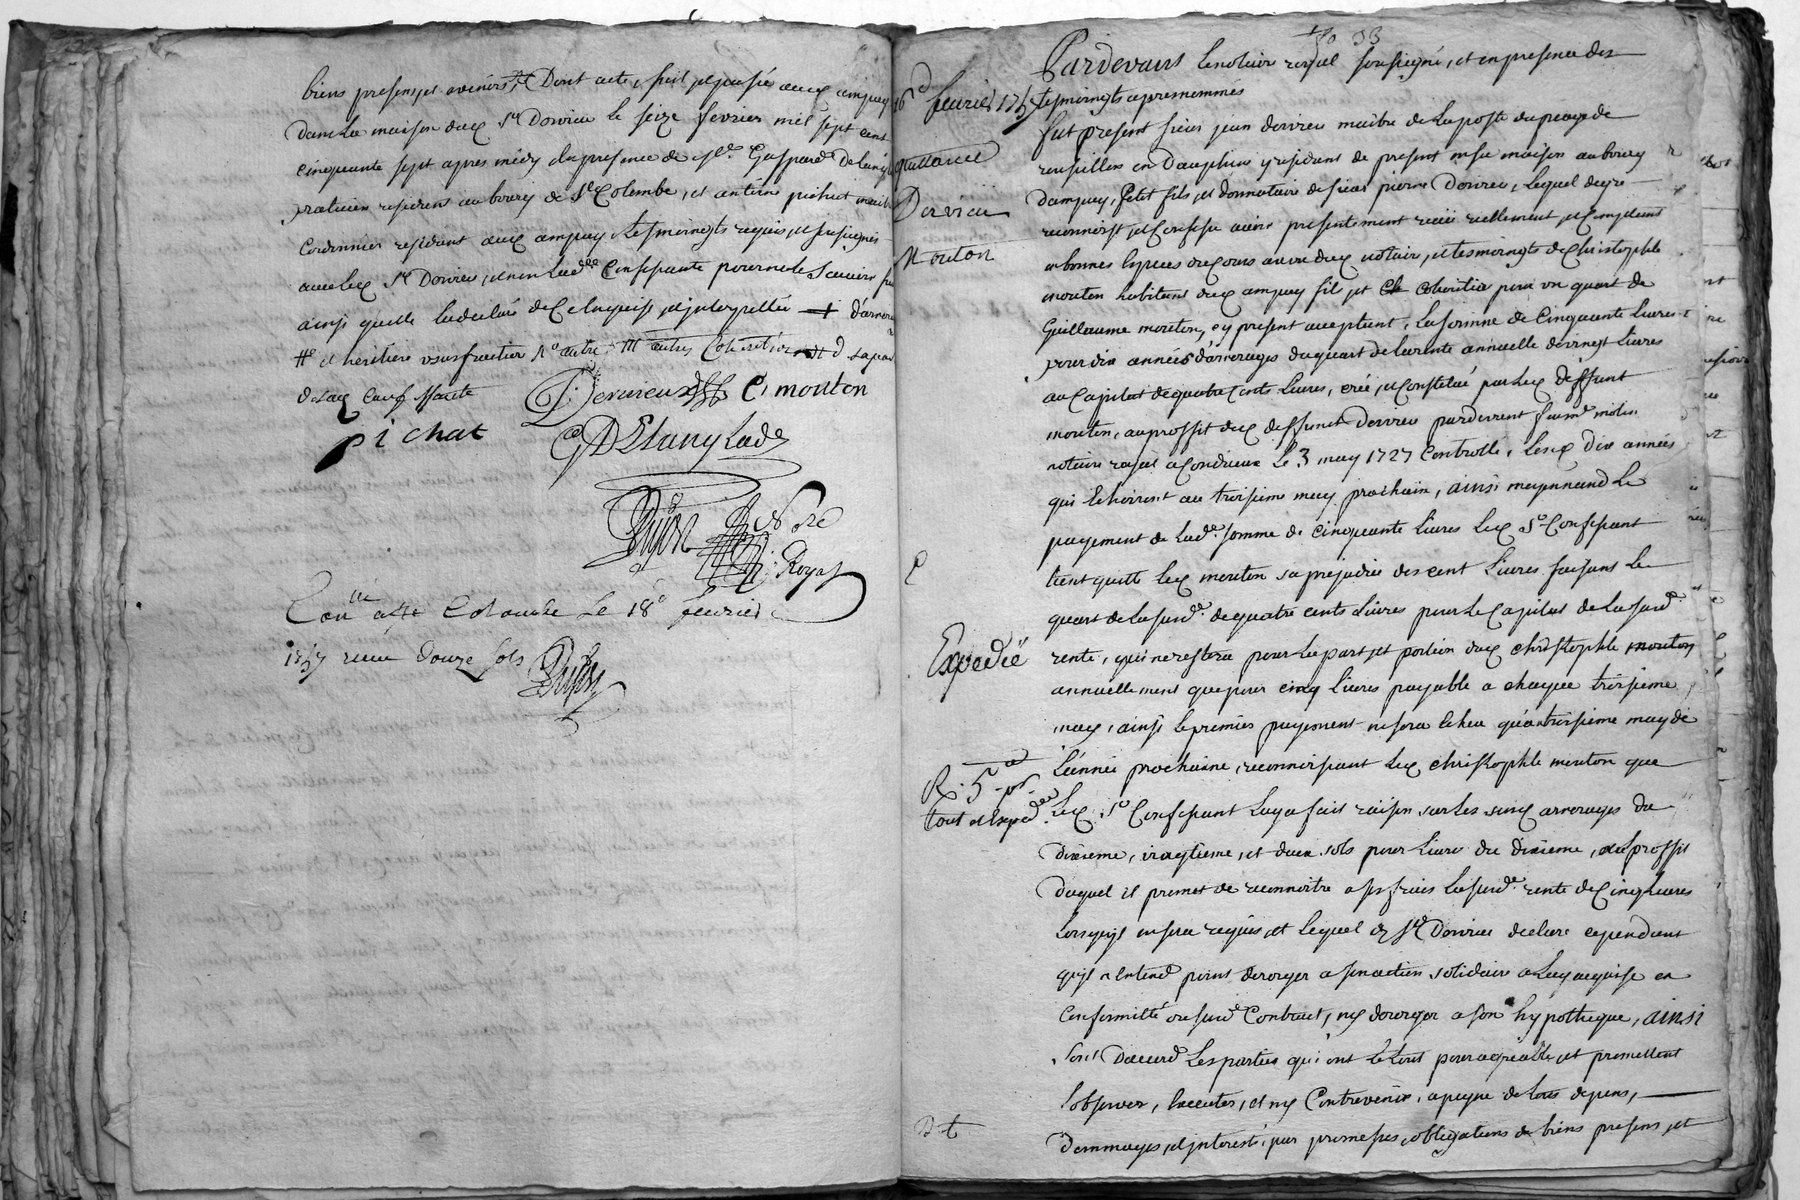 biens presens et avenirs, &c Dont acte, fait et passé aux ampuy
dans la maison dud Sr Dervieu le seize fevrier mil sept cent
cinquante sept apres midy en presence de Sr Gaspard Delangl
praticien residant au bourg de St Colombe, et antoine pichat maitre
Cordonnier residant aud ampuy tesmoingts requis, et soussignés
avec led Sr Dervieu, et non lad Confessante pour ne le Scavoir f
ainsi quelle la declaré de ce enquise et interpellée + d'arrera
# et heritiere usufruitiere N° autre, m autres Coheritiers d sa part
P. Dervieux C. mouton
pichat
G Delanglade
Dujon No.re
Royal
Con.lle a Ste Colombe le 18e fevrier
1757 receu douze sols Dujon
fo 33
16 fevrier 1757
quittance
Dervieu
Mouton
Expedié
R. 5 s
tout et exped
Pardevant le notaire royal soussigné, et en presence des
tesmoingts apres nommés
fut present sieur jean dervieu maitre de la poste du peage de
roussillon en Dauphiné y residant de present en sa maison au bourg
dampuy, Petit fils, et donnataire de sieur pierre Dervieu, lequel degre
reconnoist, et Confesse avoir presentement receu reellement et Comptant
en bonnes Especes de cours au vu dud notaire, et tesmoingts de Christophle
mouton habitant dud ampuy fils, et Coheritier pour un quart de
Guillaume mouton, cy present acceptant, la somme de Cinquante Livres
pour dix années d'arrerages du quart de la rente annuelle de vingt Livres
au Capital de quatre Cents Livres, creé, et Constitué par led deffunt
mouton, au proffit dud deffunt Dervieu pardevant feu me molin
notaire royal a Condrieux Le 3 may 1727 Controllé, lesd Dix années
qui Echeiront au troisieme may prochain, ainsi moyennand Le
payement de lad. somme de cinquante Livres led Sr Confessant
tient quitte led mouton sa prejudice des cent Livres faisant Le
quart de la susd. de quatre cents Livres pour le Capital de la susd.
rente, qui ne restera pour la part et portion dud christophle mouton
annuellement que pour cinq Livres payable a chaque troisieme
may, ainsi le premier payement ne sera Echeu qu'au troisieme may de
L'année prochaine, reconnoissant led christophle mouton que
led Sr Confessant luy a fait raison sur les susd arrerages du
dixieme, vingtieme, et deux sols pour Livre du dixieme, au proffit
duquel il promet de reconnoitre a ses frais la susd. rente de Cinq Livres
lorsquil en sera requis, et lequel d Sr Dervieu declare cependant
quil n'entend point deroger a son action solidaire a luy acquise en
Conformité du susd Contract, ny deroger a son hypotheque, ainsi
sont D'accord Les parties qui ont Le tout pour agreable, et promettent
l'observer, Executer, et ny Contrevenir, a peyne de tous depens,
dommages, et interests, par promesses, obligations de biens presens, et